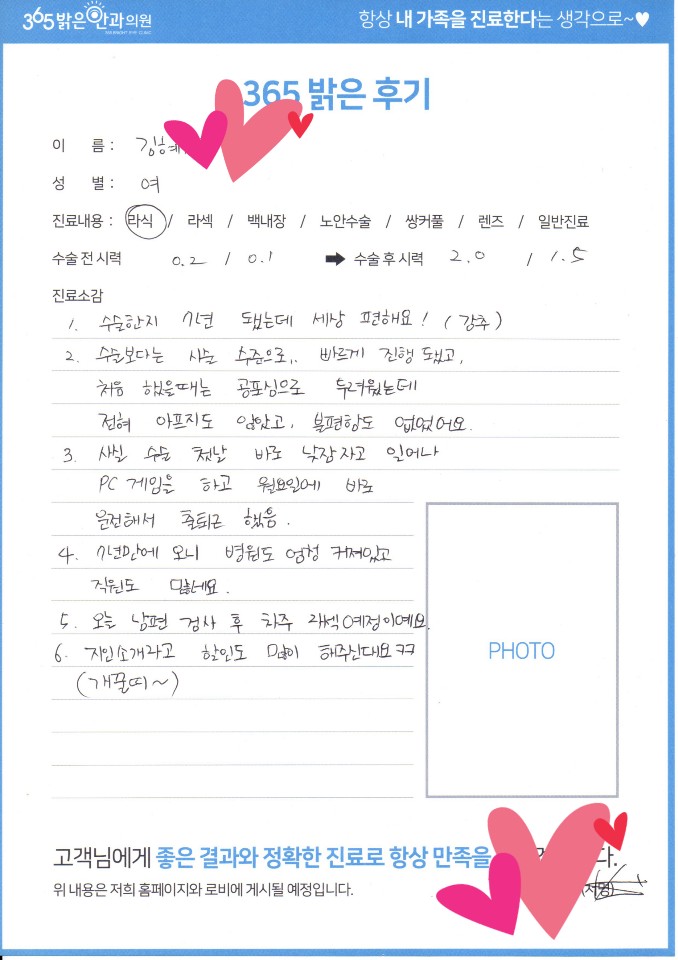 365밝은안과의원
365 BRIGHT EYE CLINIC
항상 내 가족을 진료한다는 생각으로~♥
365 밝은 후기
이 름 : 김혜
성 별 : 여
진료내용 : 라식 / 라섹 / 백내장 / 노안수술 / 쌍커풀 / 렌즈 / 일반진료
수술 전 시력 0.2 / 0.1 ➡ 수술 후 시력 2.0 / 1.5
진료소감
1. 수술한지 7년 됐는데 세상 편해요! (강추)
2. 수술보다는 시술 수준으로.. 빠르게 진행 됐고,
처음 했을때는 공포심으로 두려웠는데
전혀 아프지도 않았고, 불편함도 없었어요.
3. 사실 수술 첫날 바로 낮잠자고 일어나
PC 게임을 하고 월요일에 바로
운전해서 출퇴근 했음.
4. 7년만에 오니 병원도 엄청 커져있고
직원도 많네요.
5. 오늘 남편 검사 후 차주 라섹예정이예요.
6. 지인소개라고 할인도 많이 해주신대요ㅋㅋ
(개꿀띠~)
PHOTO
고객님에게 좋은 결과와 정확한 진료로 항상 만족을 다.
위 내용은 저희 홈페이지와 로비에 게시될 예정입니다.